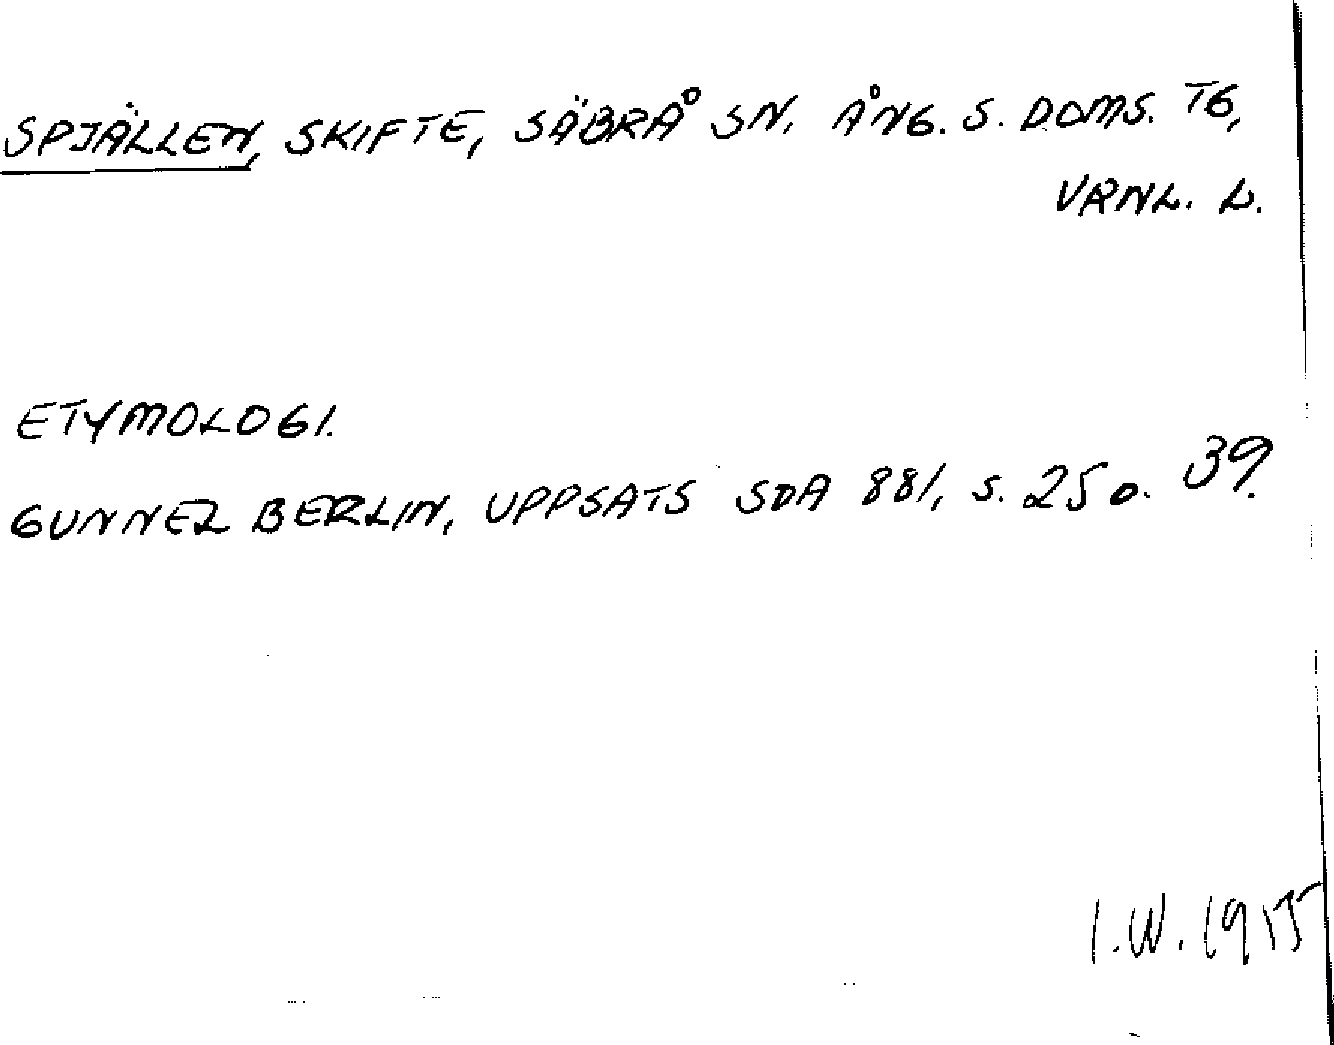 SPJÄLLEN, SKIFTE, SÄBRÅ SN. ÅNG. S. DOMS. TG,
VRNL. L.
ETYMOLOGI.
GUNNEL BERLIN, UPPSATS SOA 881, S. 25 o. 39.
I.W. 1955